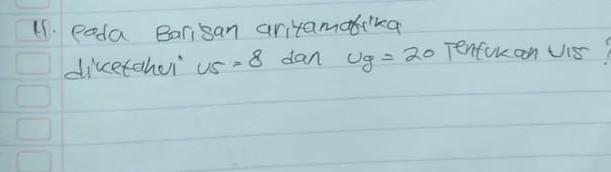 15. Pada Barisan aritamatika
diketahui u5 = 8 dan u9 = 20 Tentukan u15 ?